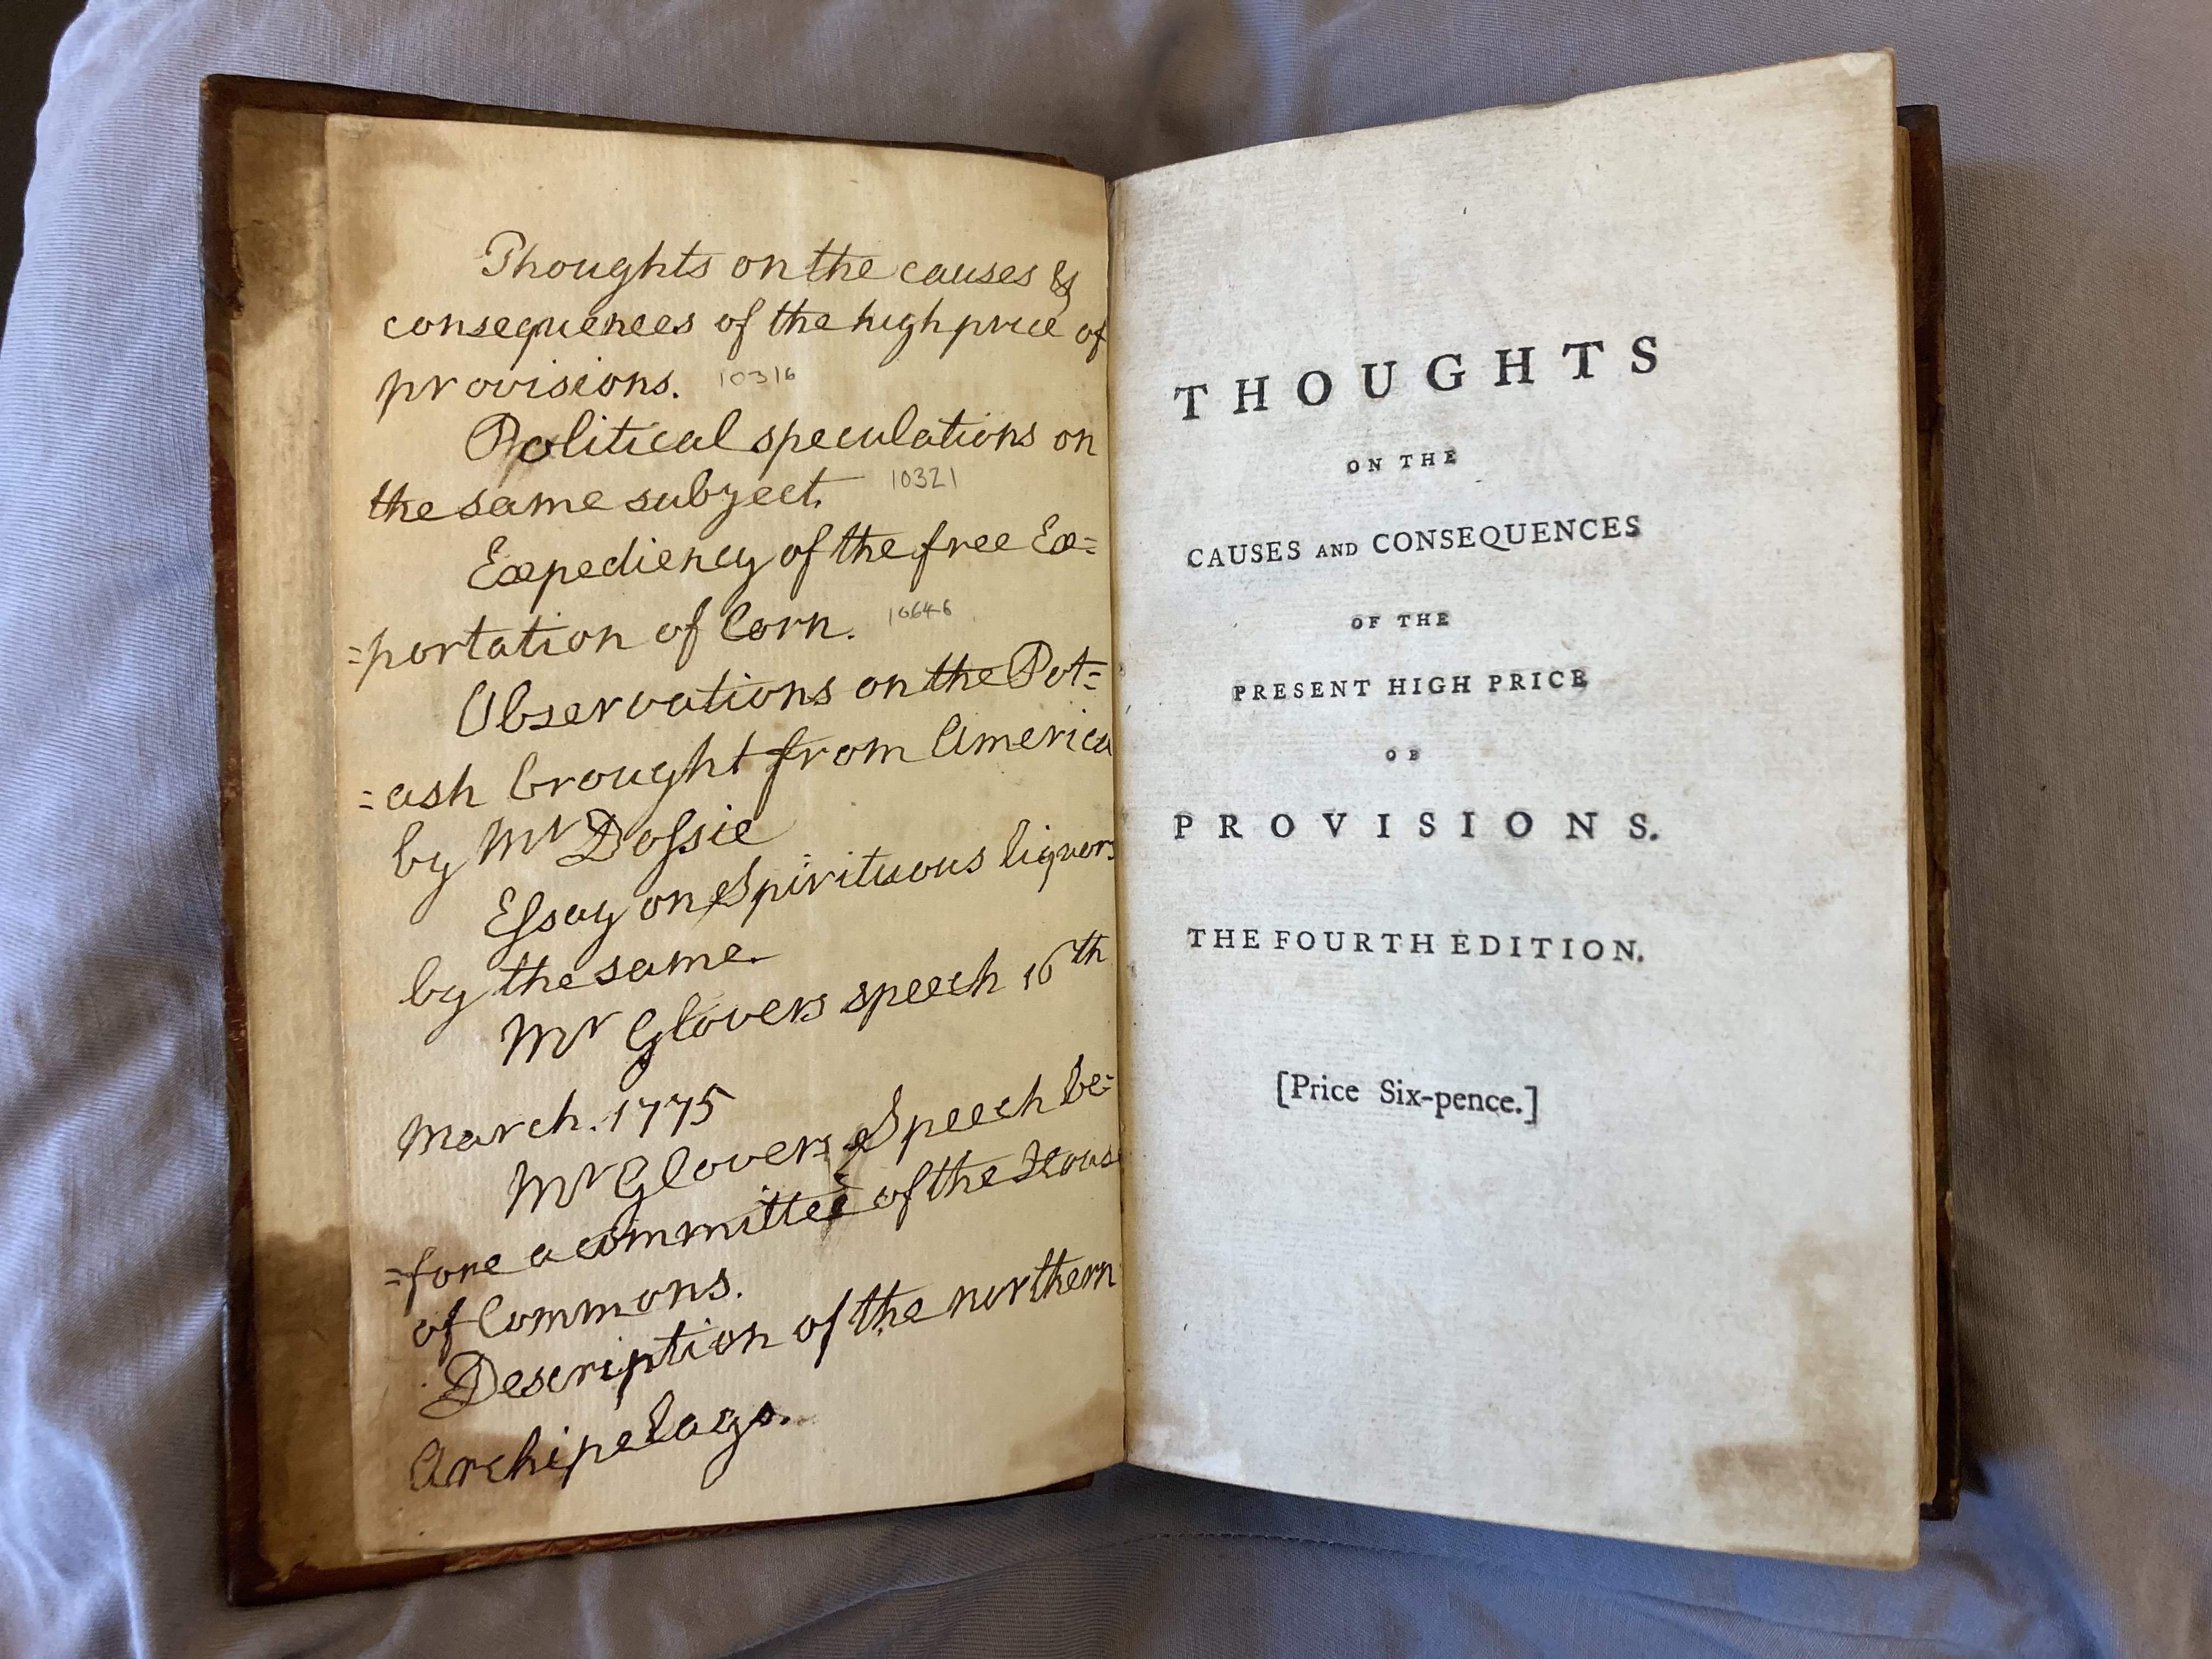 Thoughts on the causes &
consequences of the high price of
provisions. 10316
Political speculations on
the same subject. 10321
Expediency of the free Ex=
=portation of Corn. 10646
Observations on the Pot=
=ash brought from America
by Mr Doſsie
Eſsay on Spirituous liquors
by the same.
Mr Glovers speech 16th
March. 1775
Mr Glovers Speech be=
=fore a committee of the House
of Commons.
Description of the northern
Archipelago.
THOUGHTS
ON THE
CAUSES AND CONSEQUENCES
OF THE
PRESENT HIGH PRICE
OF
PROVISIONS.
THE FOURTH EDITION.
[Price Six-pence.]